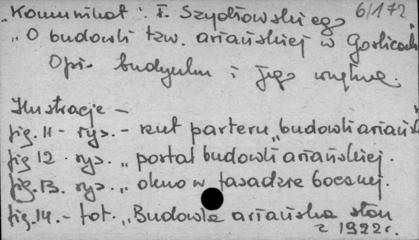 6/172
„Komunikat". F. Szydłowskiego
„O budowli tzw. ariańskiej w Gorlicach
Opis budynku i jego wnętrza.
Ilustracje –
fig. 11 - rys. - rzut parteru „budowli ariańsk
fig 12. rys. „ portal budowli ariańskiej.
fig. 13. rys. „ okno w fasadzie bocznej.
fig. 14. - fot. „Budowla ariańska stan
z 1922 r.